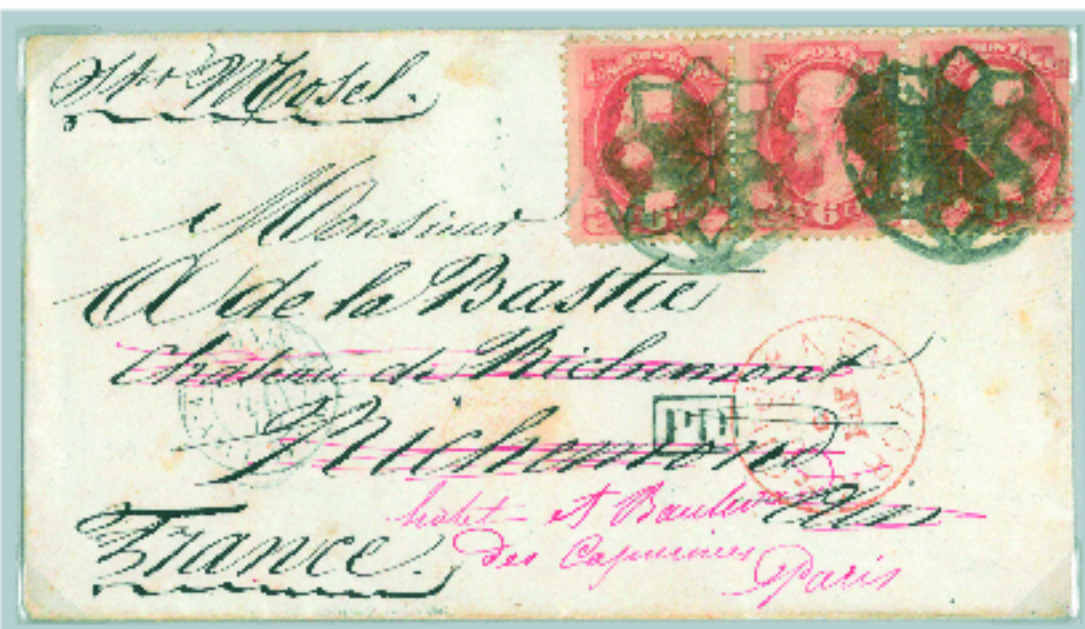 Str Mosel.
Monsieur
A de la Bastie
Chateau de Richemont
Richemont
Ain
France.
hotel et Boulevard
des Capucines
Paris
PD
NEW YORK
6